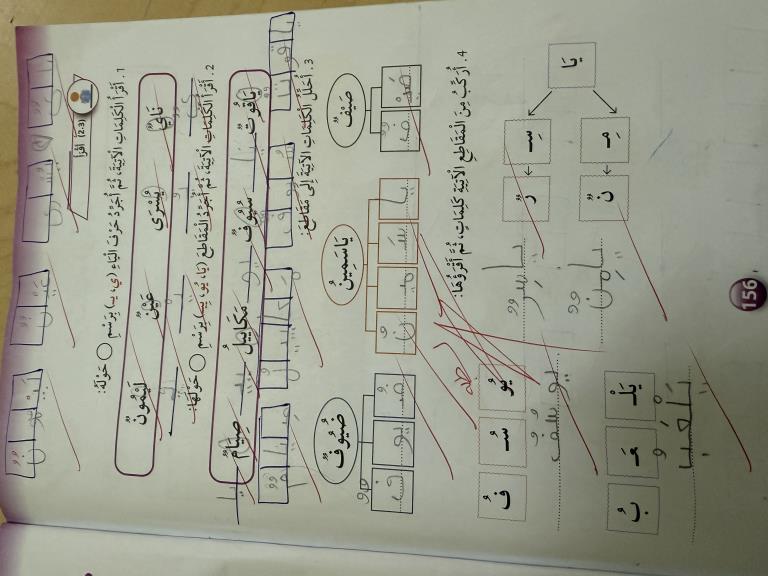 (2.3) أَقْرَأُ
1. أَقْرَأُ الْكَلِمَاتِ الْآتِيَةَ، ثُمَّ أُجَرِّدُ حَرْفَ الْيَاءِ (ي، يـ) بِرَسْمِ ◯ حَوْلَهُ:
نَايٌ يُسْرَى عَيْنٌ لَيْمُونٌ
2. أَقْرَأُ الْكَلِمَاتِ الْآتِيَةَ، ثُمَّ أُجَرِّدُ الْمَقَاطِعَ (يَا، يُو، يِيـ) بِرَسْمِ ◯ حَوْلَهَا:
يَاقُوتٌ سُيُوفٌ مَكَايِيلُ صِيَامٌ
3. أُحَلِّلُ الْكَلِمَاتِ الْآتِيَةَ إِلَى مَقَاطِعَ:
صَيْفٌ يَاسَمِينٌ ضُيُوفٌ
صَيْـ فٌ
يا سَـ مِيـ نٌ
ضُـ يو فٌ
4. أُرَكِّبُ مِنَ الْمَقَاطِعِ الْآتِيَةِ كَلِمَاتٍ، ثُمَّ أَقْرَؤُهَا:
يَا
سِـ رٌ
مِـ نٌ
يُو سُـ فُ
يَلْـ عَـ بُ
يَلْعَبُ
156